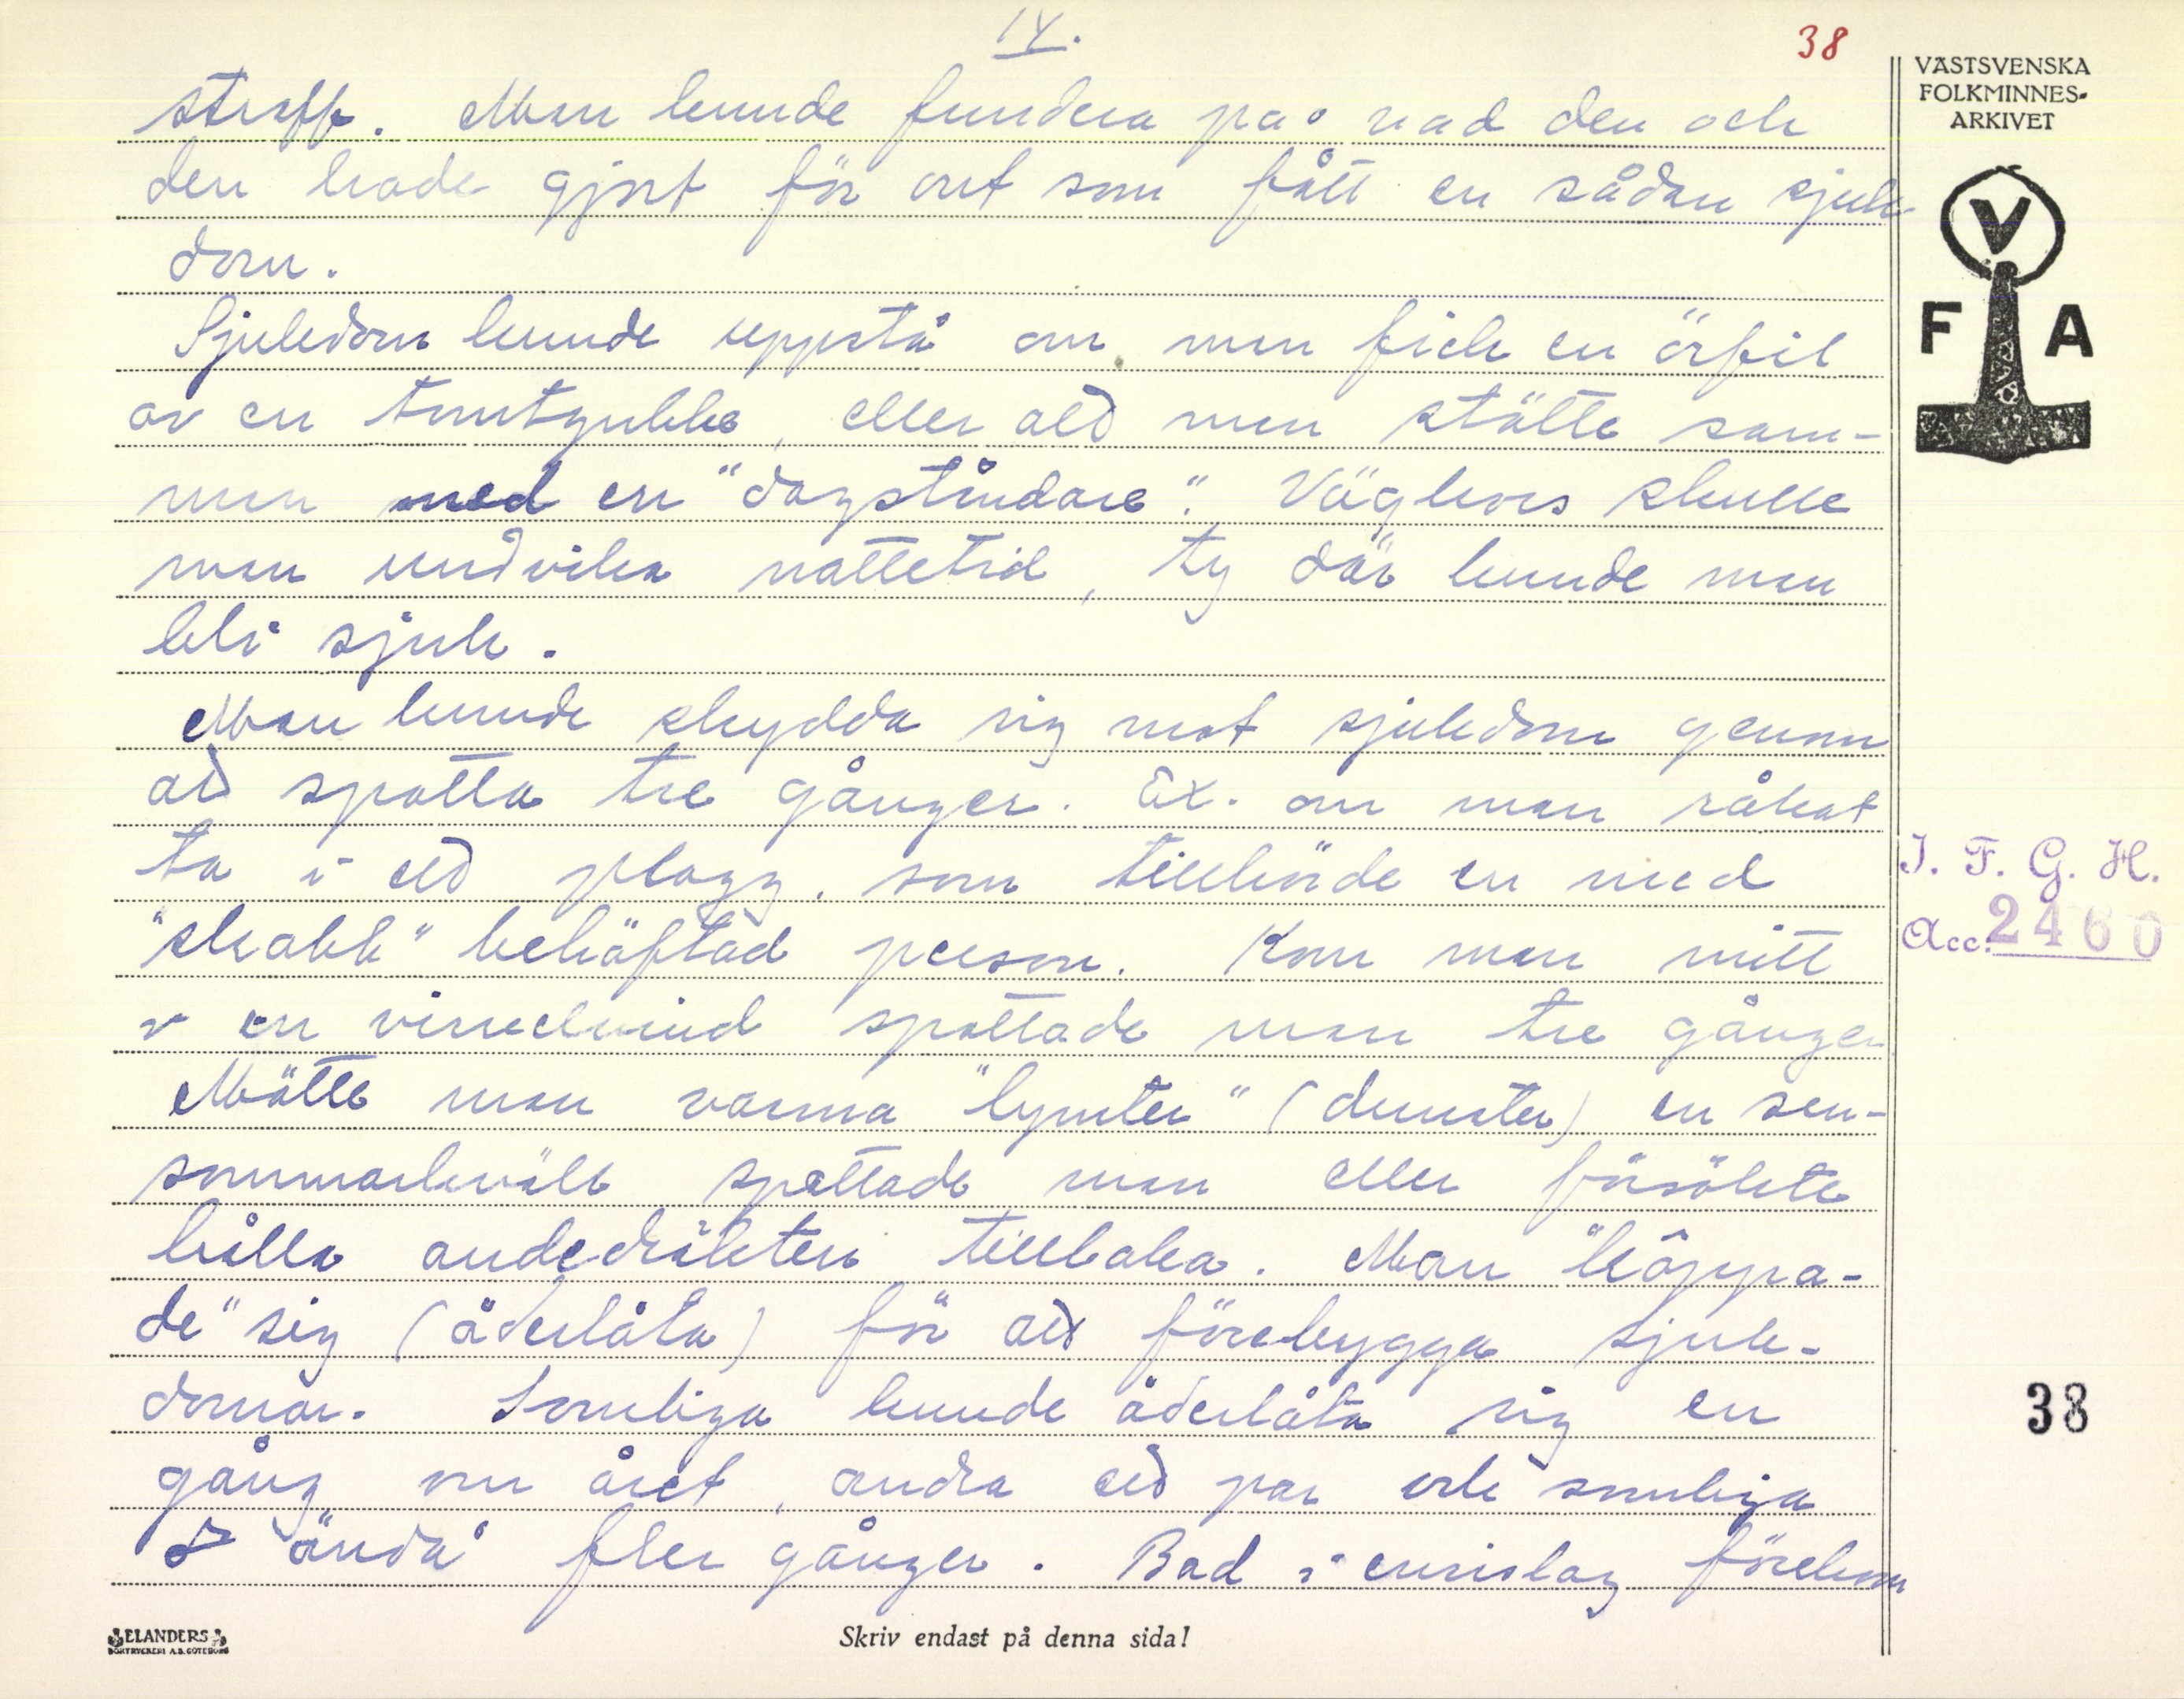 IV.
38
VÄSTSVENSKA
FOLKMINNES-
ARKIVET
V
F A
straff. Man kunde fundera på vad den och
den hade gjort för ont som fått en sådan sjuk-
dom.
Sjukdom kunde uppstå om man fick en örfil
av en tomtgubbe, eller att man stötte sam-
man med en "dagståndare". Vägkors skulle
man undvika nattetid, ty där kunde man
bli sjuk.
Man kunde skydda sig mot sjukdom genom
att spotta tre gånger. Ex. om man råkat
ta i ett plagg, som tillhörde en med
"skabb" behäftad person. Kom man mitt
i en virvelvind spottade man tre gånger
Mötte man varma "lymter" (dunster) en sen-
sommarkväll spottade man eller försökte
hålla andedräkten tillbaka. Man "köppa-
de" sig (åderlåta) för att förebygga sjuk-
domar. Somliga kunde åderlåta sig en
gång om året, andra ett par och somliga
ändå fler gånger. Bad i enrislag förekom
I. F. G. H.
Acc. 2460
38
ELANDERS
BOKTRYCKERI A.B. GÖTEBORG
Skriv endast på denna sida!